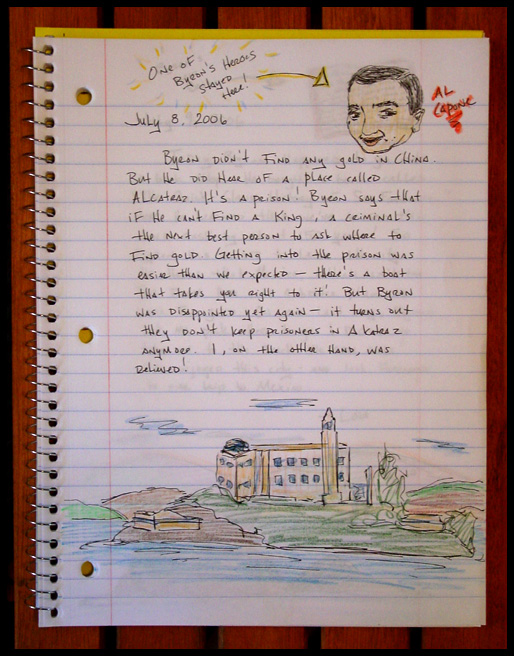 One of
Byron's Heroes
stayed
Here!
AL
CAPONE
July 8, 2006
Byron didn't find any gold in China.
But he did hear of a place called
Alcatraz. It's a prison! Byron says that
if he can't find a king, a criminal's
the next best person to ask where to
find gold. Getting into the prison was
easier than we expected — there's a boat
that takes you right to it! But Byron
was disappointed yet again — it turns out
they don't keep prisoners in Alcatraz
anymore. I, on the other hand, was
relieved!